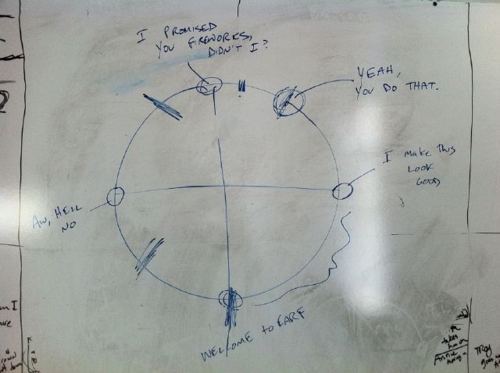 I PROMISED
YOU FIREWORKS,
DIDN'T I?
YEAH,
YOU DO THAT.
I MAKE THIS
LOOK
GOOD
AW, HELL
NO
WELCOME TO EARF